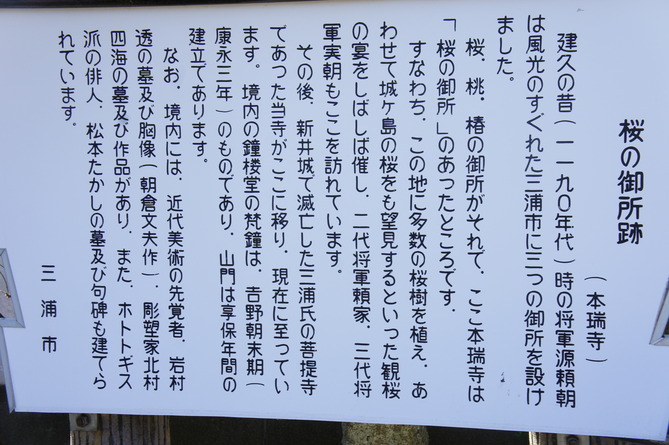 桜の御所跡
(本瑞寺)
建久の昔(一一九〇年代)時の将軍源頼朝
は風光のすぐれた三浦市に三つの御所を設け
ました。
桜、桃、椿の御所がそれで、ここ本瑞寺は
「桜の御所」のあったところです。
すなわち、この地に多数の桜樹を植え、あ
わせて城ヶ島の桜をも望見するといった観桜
の宴をしばしば催し、二代将軍頼家、三代将
軍実朝もここを訪れています。
その後、新井城で滅亡した三浦氏の菩提寺
であった当寺がここに移り、現在に至ってい
ます。境内の鐘楼堂の梵鐘は、吉野朝末期(
康永三年)のものであり、山門は享保年間の
建立であります。
なお、境内には、近代美術の先覚者、岩村
透の墓及び胸像(朝倉文夫作)、彫塑家北村
四海の墓及び作品があり、また、ホトトギス
派の俳人、松本たかしの墓及び句碑も建てら
れています。
三浦市